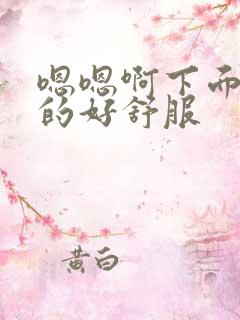 嗯嗯啊下而
的好舒服
黄白